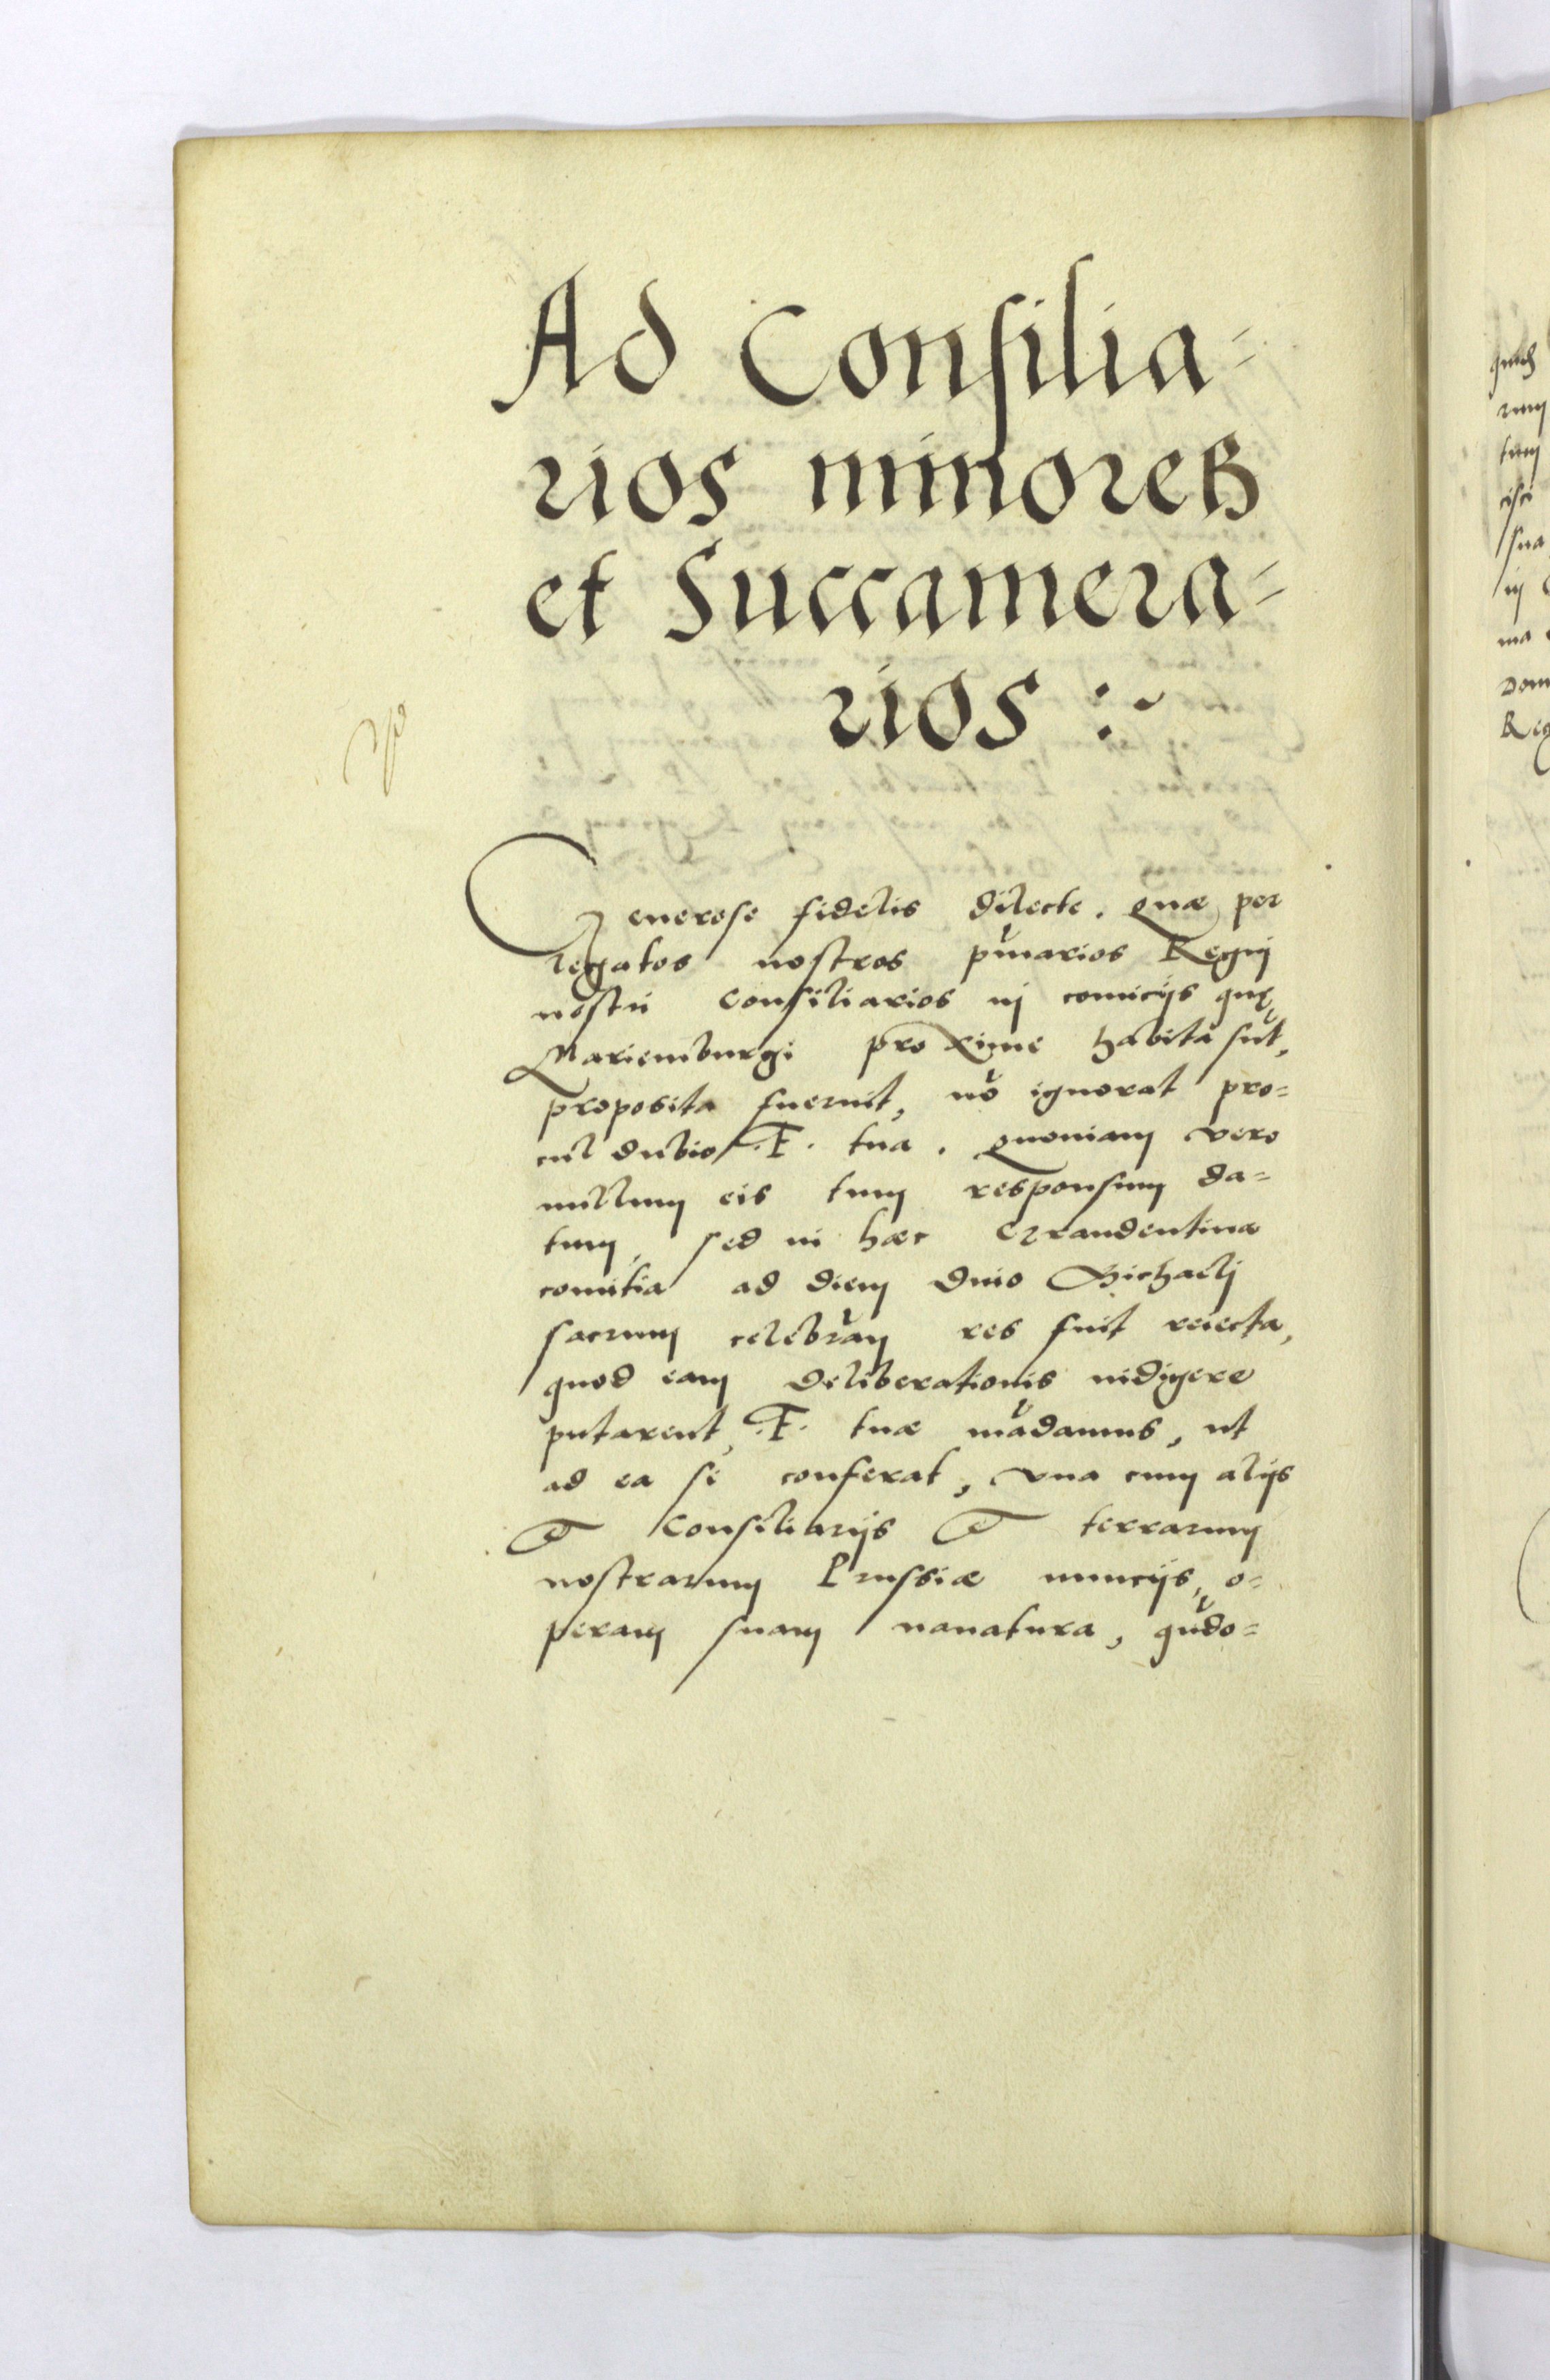 Ad Consilia=
rios minores
et Succamera=
rios :~
Generose fidelis dilecte. Quæ per
legatos nostros pͮmarios Regnj
nostri Consiliarios in comicijs quę
Mariemburgi proxime habita sūt,
proposita fuerunt, nō ignorat pro=
cul dubio .F. tua. Quoniam vero
nullum eis tum responsum da=
tum, sed in hæc Grraudentina
comitia ad diem Diuo Michaelj
sacrum celebrāħ res fuit reiecta,
quod eam deliberationis indigere
putarent, .F. tuæ mādamus, ut
ad ea se conferat, vna cum alijs
et Consiliarijs et terrarum
nostrarum Prussiæ nuncijs, o=
peram suam nauatura, quͦdo=